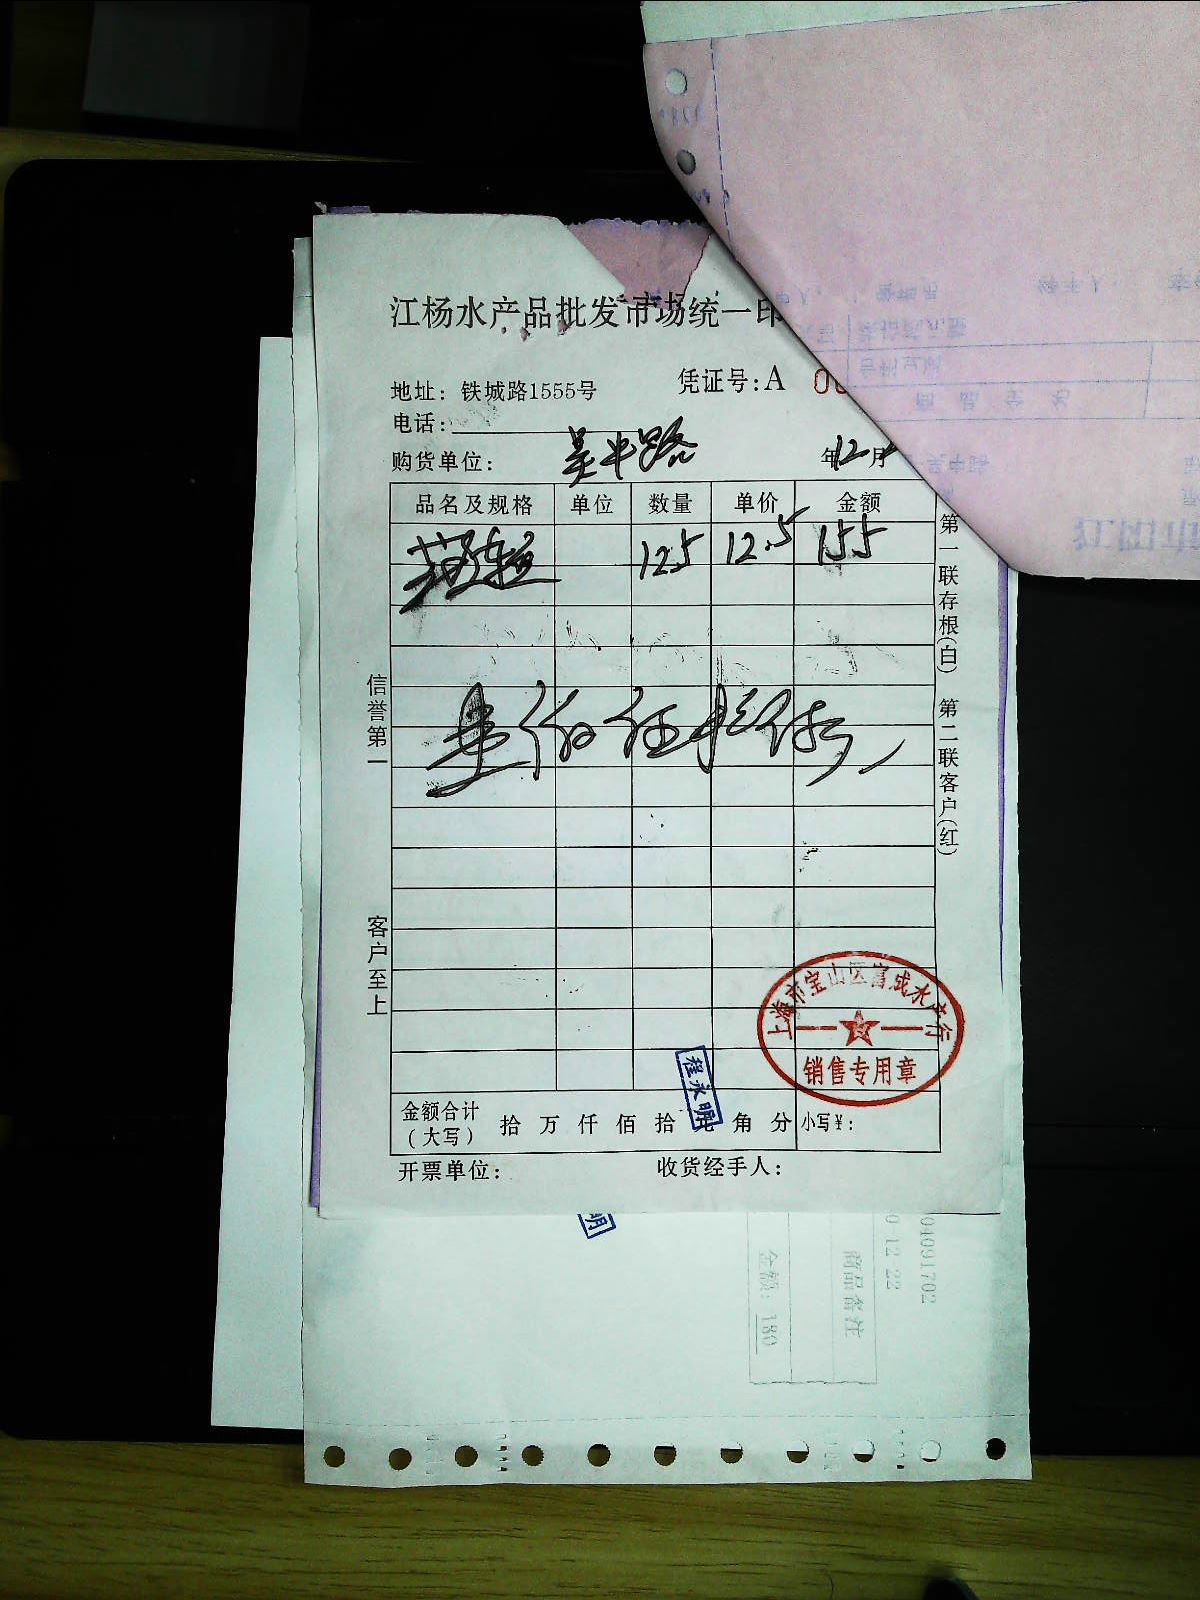 江杨水产品批发市场统一印
地址：铁城路1555号
凭证号：A 00
电话：
购货单位：吴中路
年12月
品名及规格 单位 数量 单价 金额
125 12.5 155
壹佰伍拾伍
信誉第一
客户至上
第一联存根(白) 第二联客户(红)
上海市宝山区富成水产行
销售专用章
程永明
金额合计
(大写) 拾 万 仟 佰 拾 元 角 分 小写¥：
开票单位： 收货经手人：
明
04091702
0-12-22
商品备注
金额：180